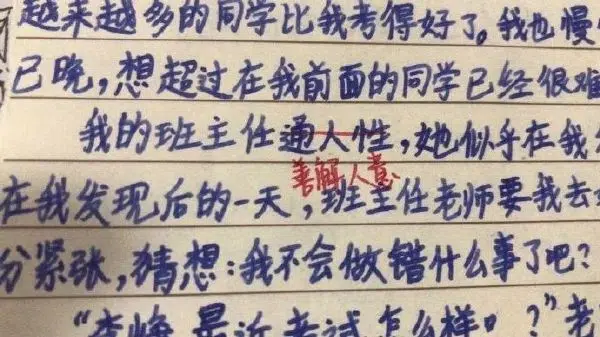 越来越多的同学比我考得好了。我也慢
已晚,想超过在我前面的同学已经很难
我的班主任通人性,她似乎在我
善解人意
在我发现后的一天,班主任老师要我去
分紧张,猜想:我不会做错什么事了吧?
最近考试怎么样?”老